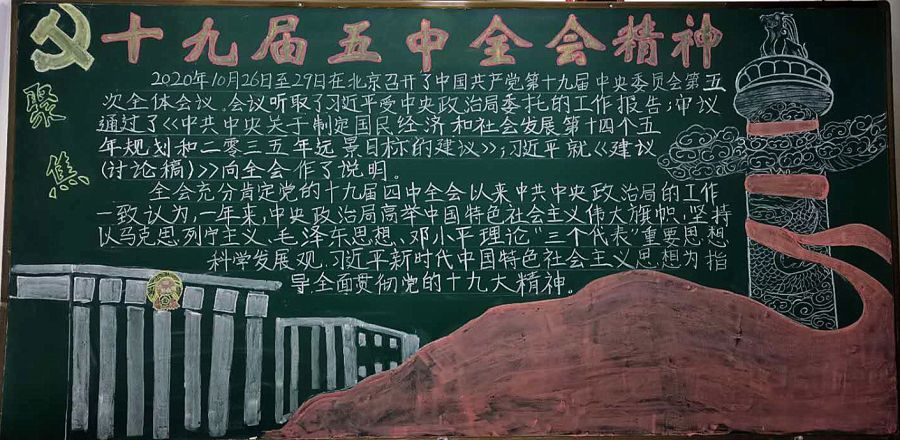 十九届五中全会精神
聚焦
2020年10月26日至27日在北京召开了中国共产党第十九届中央委员会第五
次全体会议.会议听取了习近平受中央政治局委托的工作报告;审议
通过了《中共中央关于制定国民经济和社会发展第十四个五
年规划和二零三五年远景目标的建议》;习近平就《建议
(讨论稿)》向全会作了说明。
全会充分肯定党的十九届四中全会以来中共中央政治局的工作
一致认为,一年来,中央政治局高举中国特色社会主义伟大旗帜,坚持
以马克思列宁主义、毛泽东思想、邓小平理论"三个代表"重要思想
科学发展观.习近平新时代中国特色社会主义思想为指
导,全面贯彻党的十九大精神。